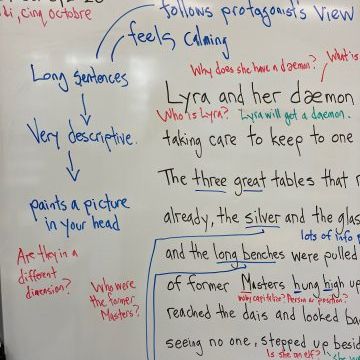 follows protagonist's view
di, cinq octobre
feels calming
Long sentences
Why does she have a daemon?
What is
Lyra and her dæmon
Who is Lyra?
Lyra will get a daemon.
Very descriptive.
taking care to keep to one
The three great tables that
paints a picture
in your head
already, the silver and the glas
lots of info
and the long benches were pulled
Are they in a
different
dimension?
Who were
the former
Masters?
of former Masters hung high up
Why capitalize? Person or position?
reached the dais and looked bac
seeing no one, stepped up besid
Is she an elf?